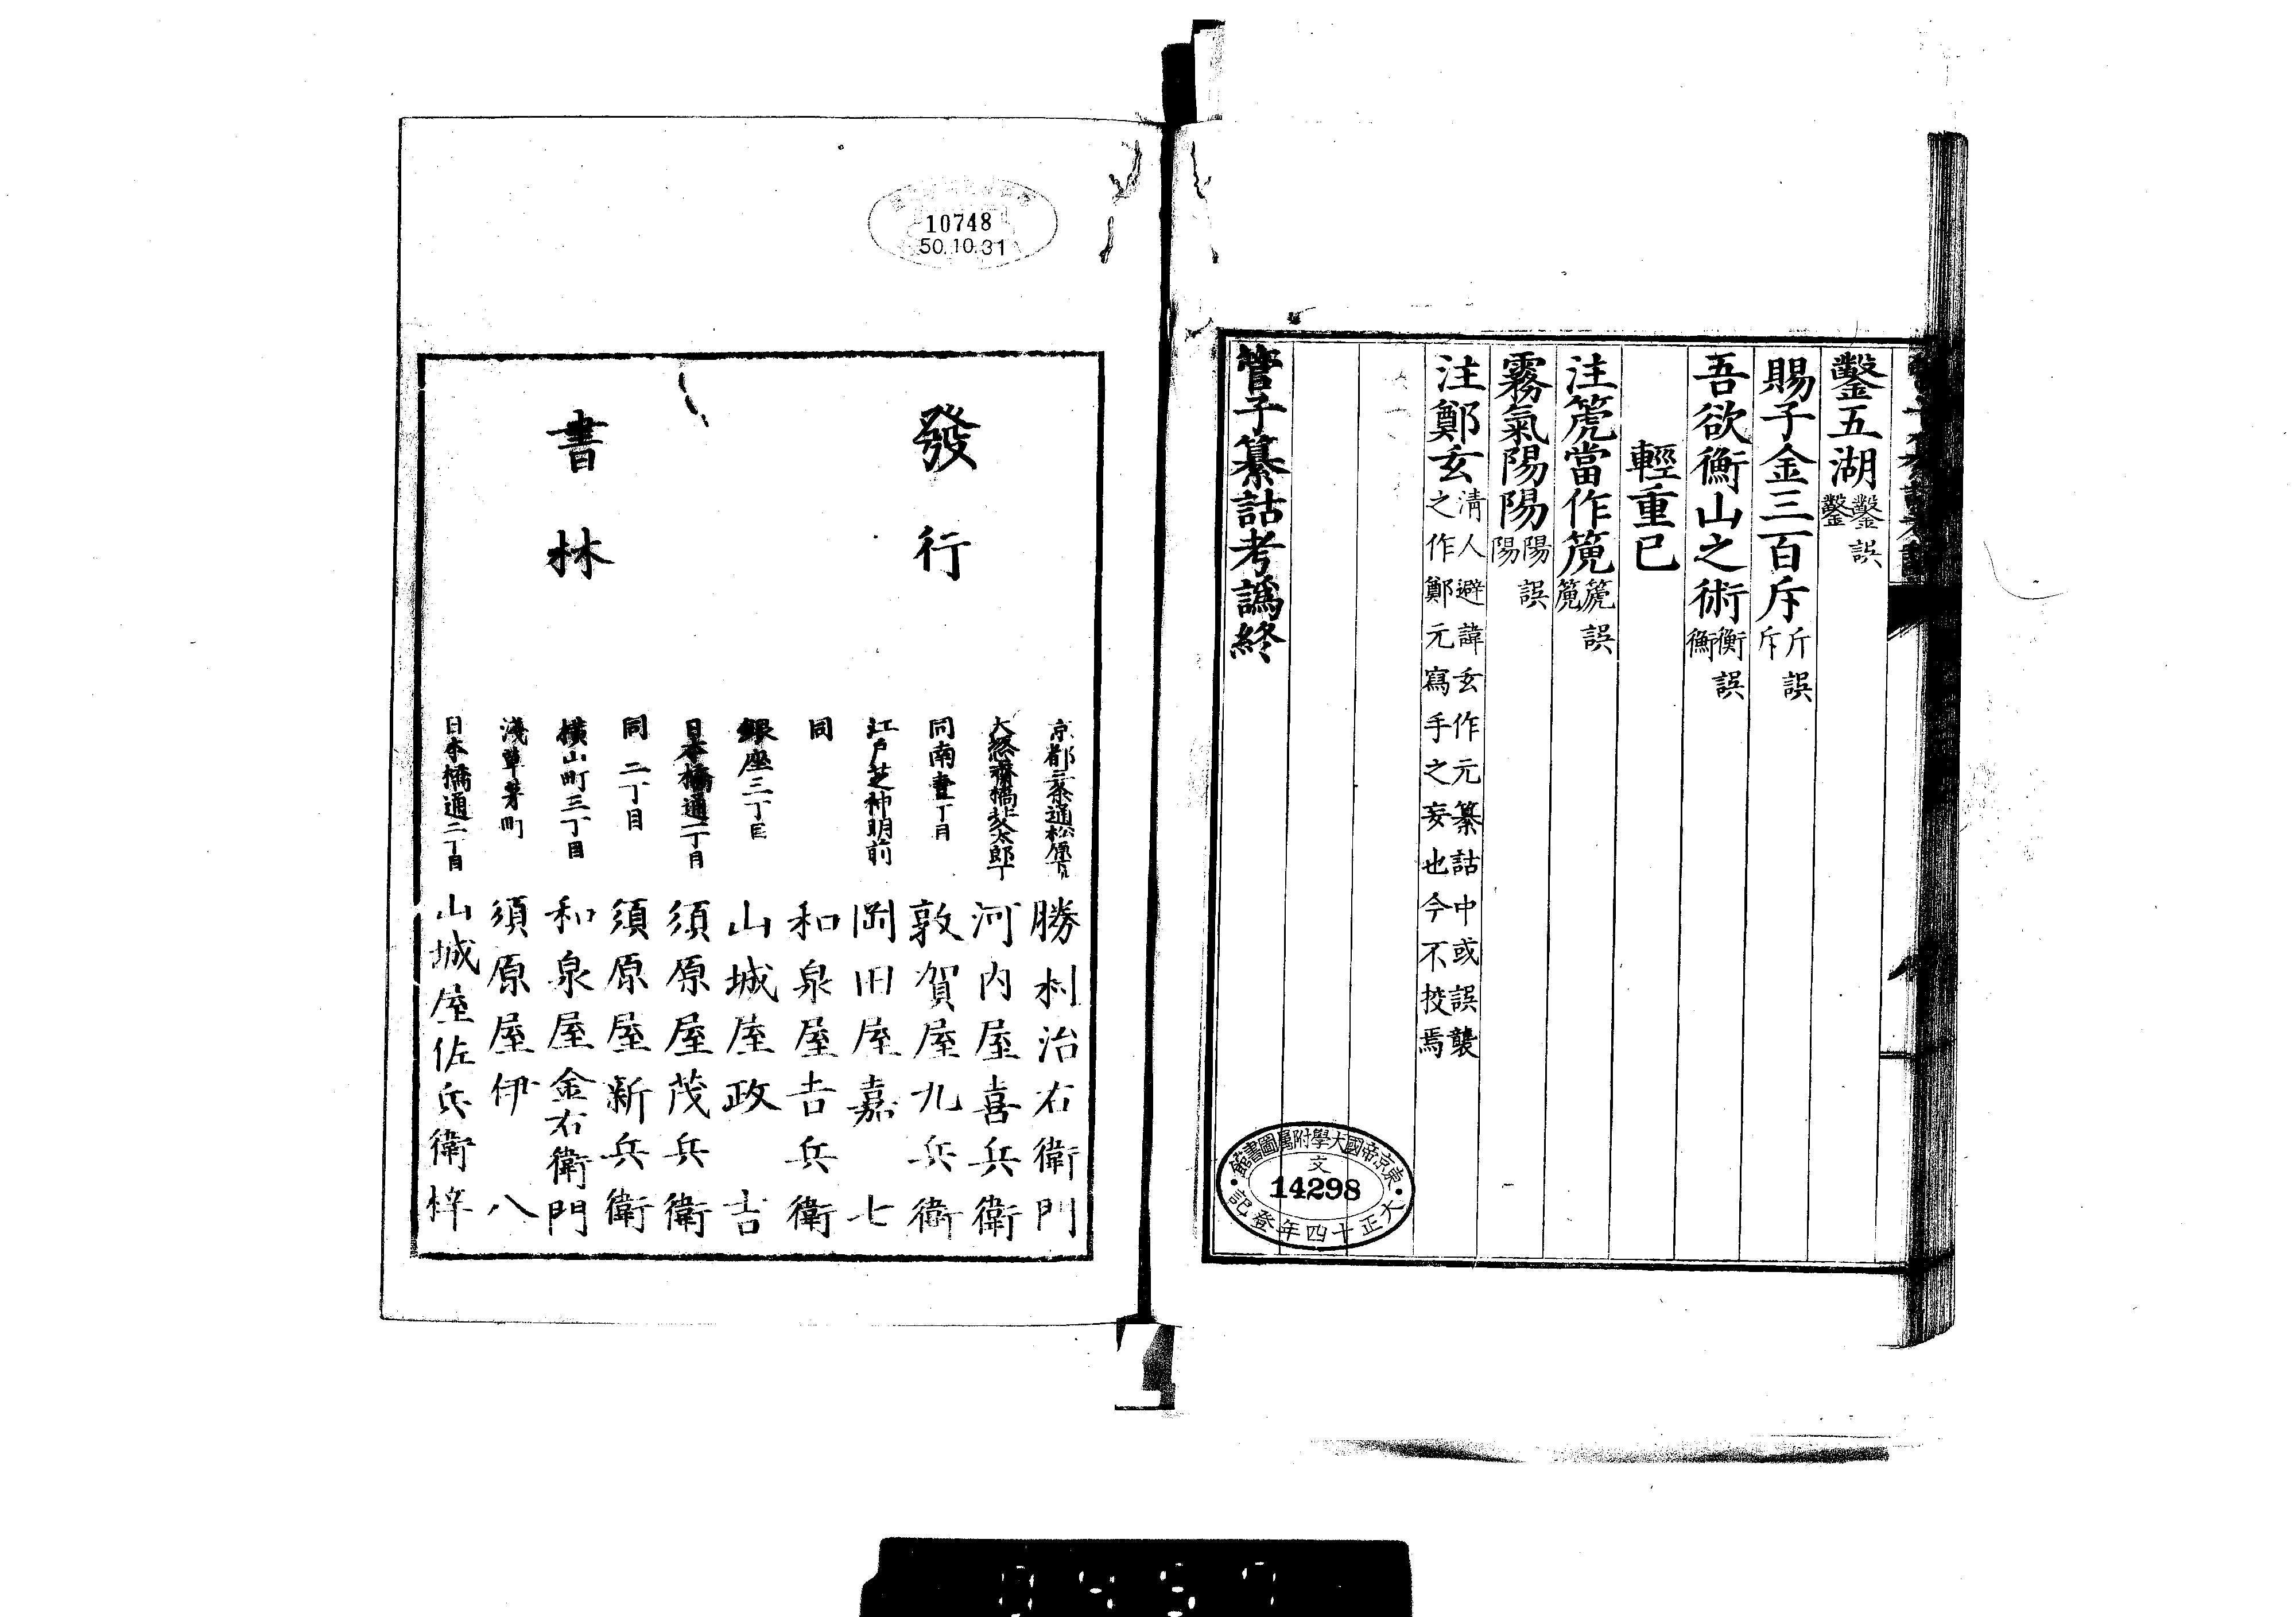 鑿五湖鑿誤鑿
賜子金三百斥斤誤斥
吾欲衡山之術衡誤衡
輕重已
注箎當作箎箎誤箎
霧氣陽陽陽誤陽
注鄭玄清人避諱玄作元纂詁中或誤襲
之作鄭元寫手之妄也今不挍焉
管子纂詁考譌終
東京帝國大學附屬圖書館
文
14298
大正十四年登記
10748
50.10.31
發行
書林
京都三条通 勝村治右衛門
大 齋橋 太郎丁 河内屋喜兵衛
同南壹丁目 敦賀屋九兵衛
江戸芝神明前 岡田屋嘉七
同 和泉屋吉兵衛
銀座三丁目 山城屋政吉
日本橋通一丁目 須原屋茂兵衛
同二丁目 須原屋新兵衛
横山町三丁目 和泉屋金右衛門
淺草茅町 須原屋伊八
日本橋通二丁目 山城屋佐兵衛梓